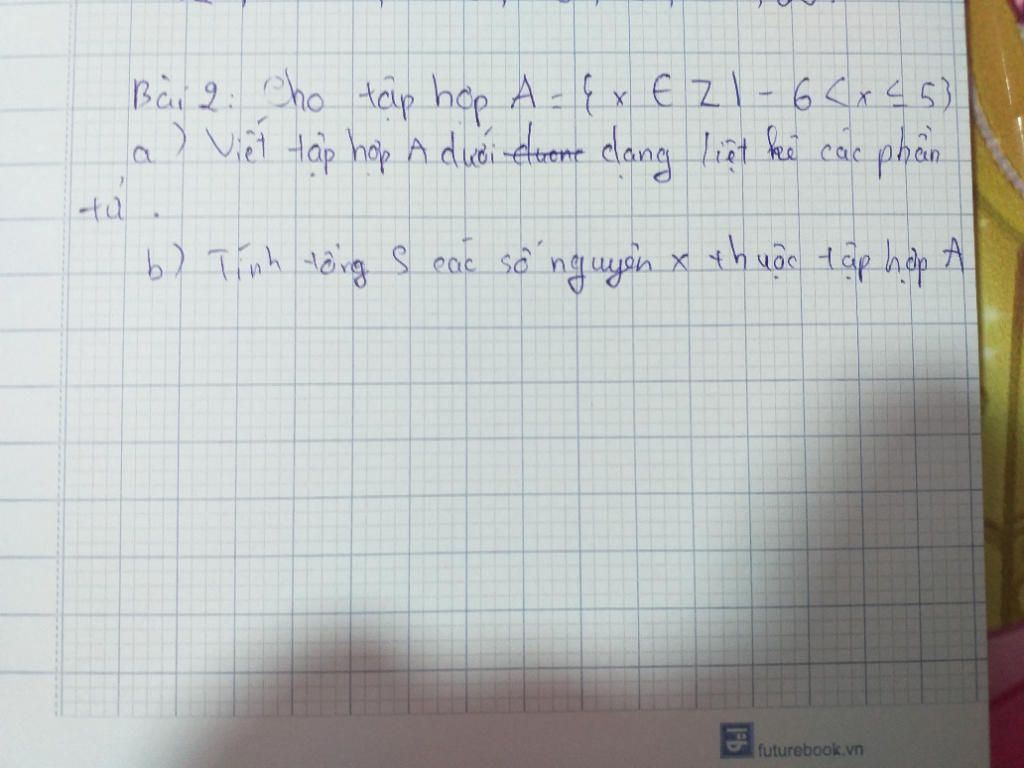 Bài 2: Cho tập hợp A = { x ∈ Z | - 6 < x ≤ 5 }
a) Viết tập hợp A dưới dạng liệt kê các phần
tử .
b) Tính tổng S các số nguyên x thuộc tập hợp A
futurebook.vn